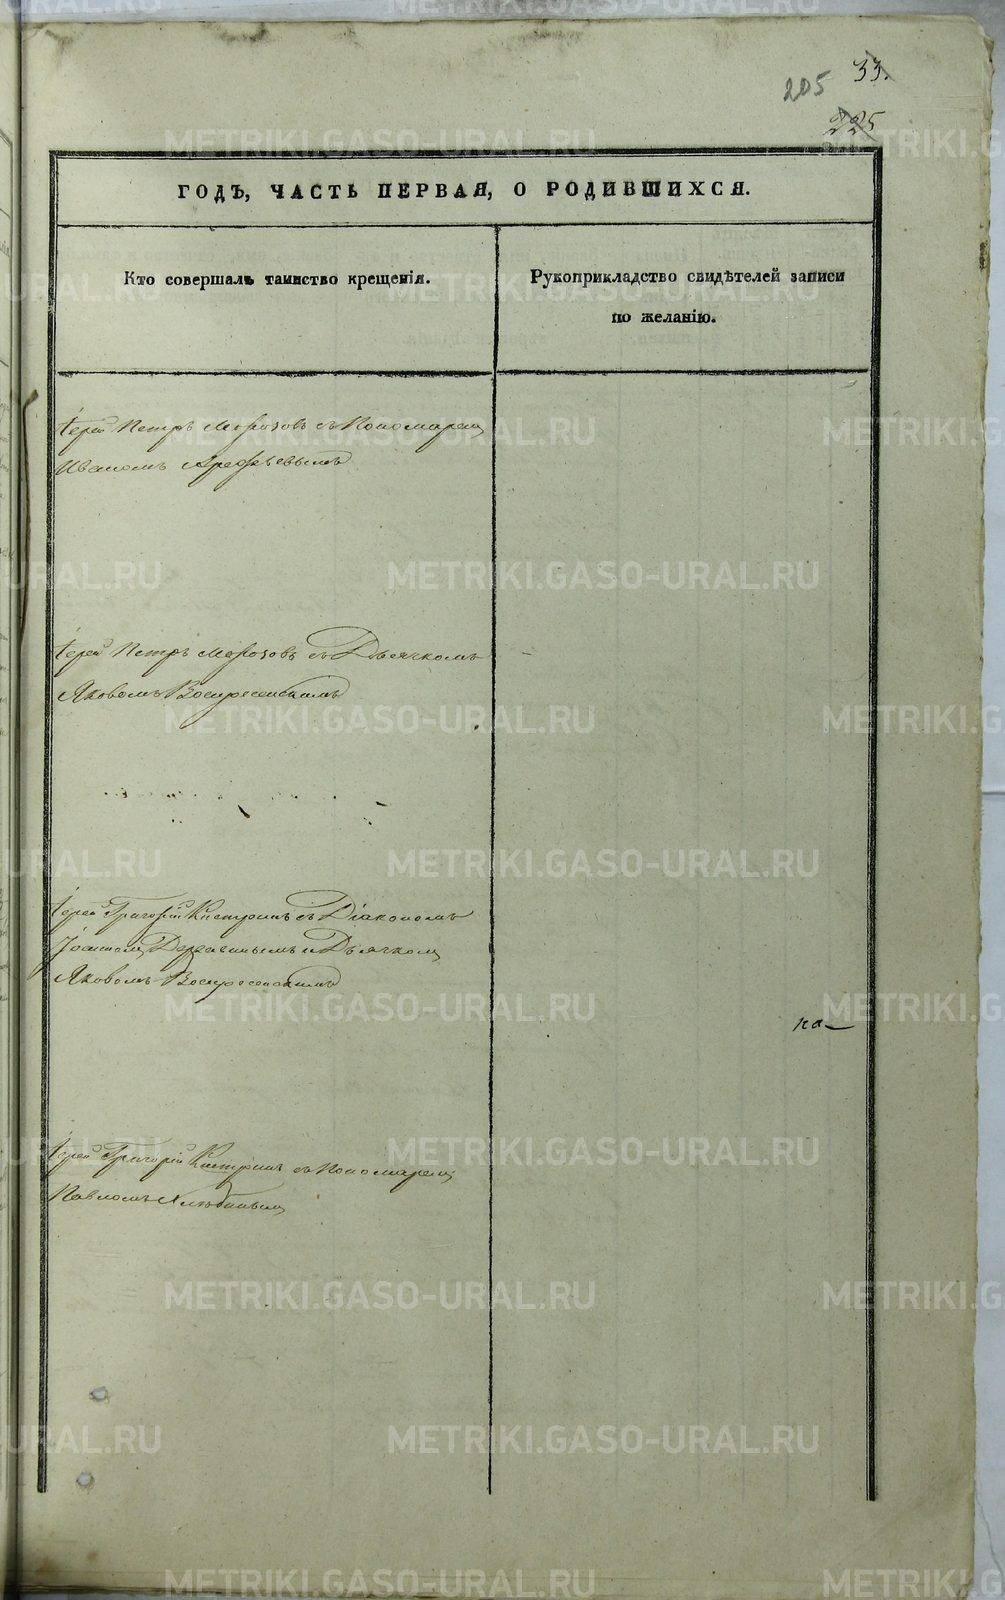 33.
205
225
ГОДЪ, ЧАСТЬ ПЕРВАЯ, О РОДИВШИХСЯ.
Кто совершалъ таинство крещенія.
Рукоприкладство свидѣтелей записи
по желанію.
Іерей Петръ Морозовъ съ Пономаремъ
Иваномъ Арефьевымъ
Іерей Петръ Морозовъ съ Дьячкомъ
Яковомъ Воскресенскимъ
Іерей Григорій съ Діакономъ
Іоанномъ и Дьячкомъ
Яковомъ Воскресенскимъ
ка
Іерей Григорій съ Пономаремъ
Павломъ
METRIKI.GASO-URAL.RU